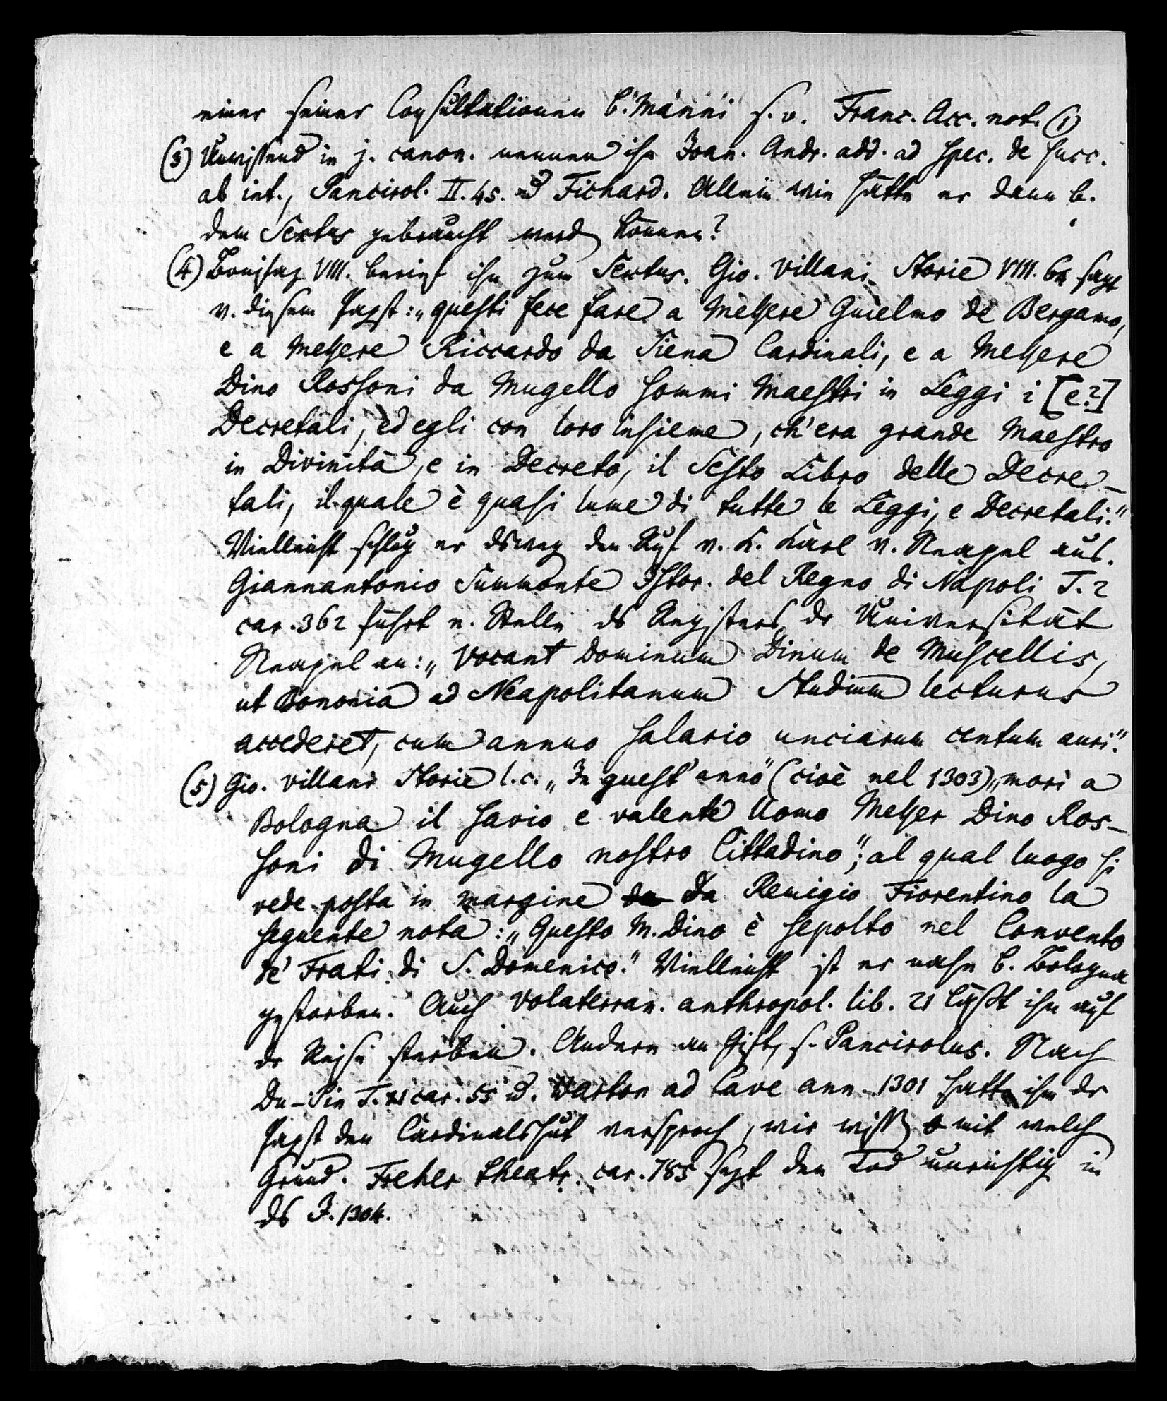 einer seiner Consultationen b. Manni s. v. Franc. Acc. not. (1)
(3) Unwissend in j. canon. nennen ihn Joan. Andr. add. ad Spec. de succ.
ab int., Pancirol. II. 45. und Fichard. Allein wie hätte er dann b.
dem Sextus gebraucht werden können?
(4) Bonifaz VIII. berief ihn zum Sextus. Gio. Villani Storie VIII. 64 sagt
v. diesem Papst: „questi fece fare a Messere Guielmo de Bergamo,
e a Messere Riccardo da Siena Cardinali, e a Messere
Dino Rossoni da Mugello sommi Maestri in Leggi i [e?]
Decretali, ed egli con loro insieme, ch'era grande Maestro
in Divinità, e in Decreto, il Sesto Libro delle Decre-
tali, il quale è quasi lume di tutte le Leggi, e Decretali."
Vielleicht schlug er dswegen den Ruf v. K. Karl v. Neapel aus.
Giannantonio Summonte Istor. del Regno di Napoli T. 2
car. 362 führt e. Stelle ds Registers dr Universität
Neapel an: „Vocant Dominum Dinum de Muscellis,
ut Bononia ad Neapolitanum Studium lecturus
accederet, cum annuo salario unciarum centum auri".
(5) Gio. Villani Storie l. c. „In quest' anno" (cioè nel 1303) „morì a
Bologna il savio e valente Uomo Messer Dino Ros-
soni di Mugello nostro Cittadino"; al qual luogo si
vede posta in margine da Remigio Fiorentino la
seguente nota: „Questo M. Dino è sepolto nel Convento
de' Frati di S. Domenico." Vielleicht ist er nahe b. Bologna
gestorben. Auch Volaterran. anthropol. lib. 21 läßt ihn auf
dr Reise sterben. Andere an Gift, s. Pancirolus. Nach
Du-Pin T. XI car. 55 u. Warton ad Cave ann. 1301 hatte ihm dr
Papst den Cardinalshut versproch, wir wissen mit welch
Grund. Freher theatr. car. 785 setzt den Tod unrichtig in
ds J. 1304.